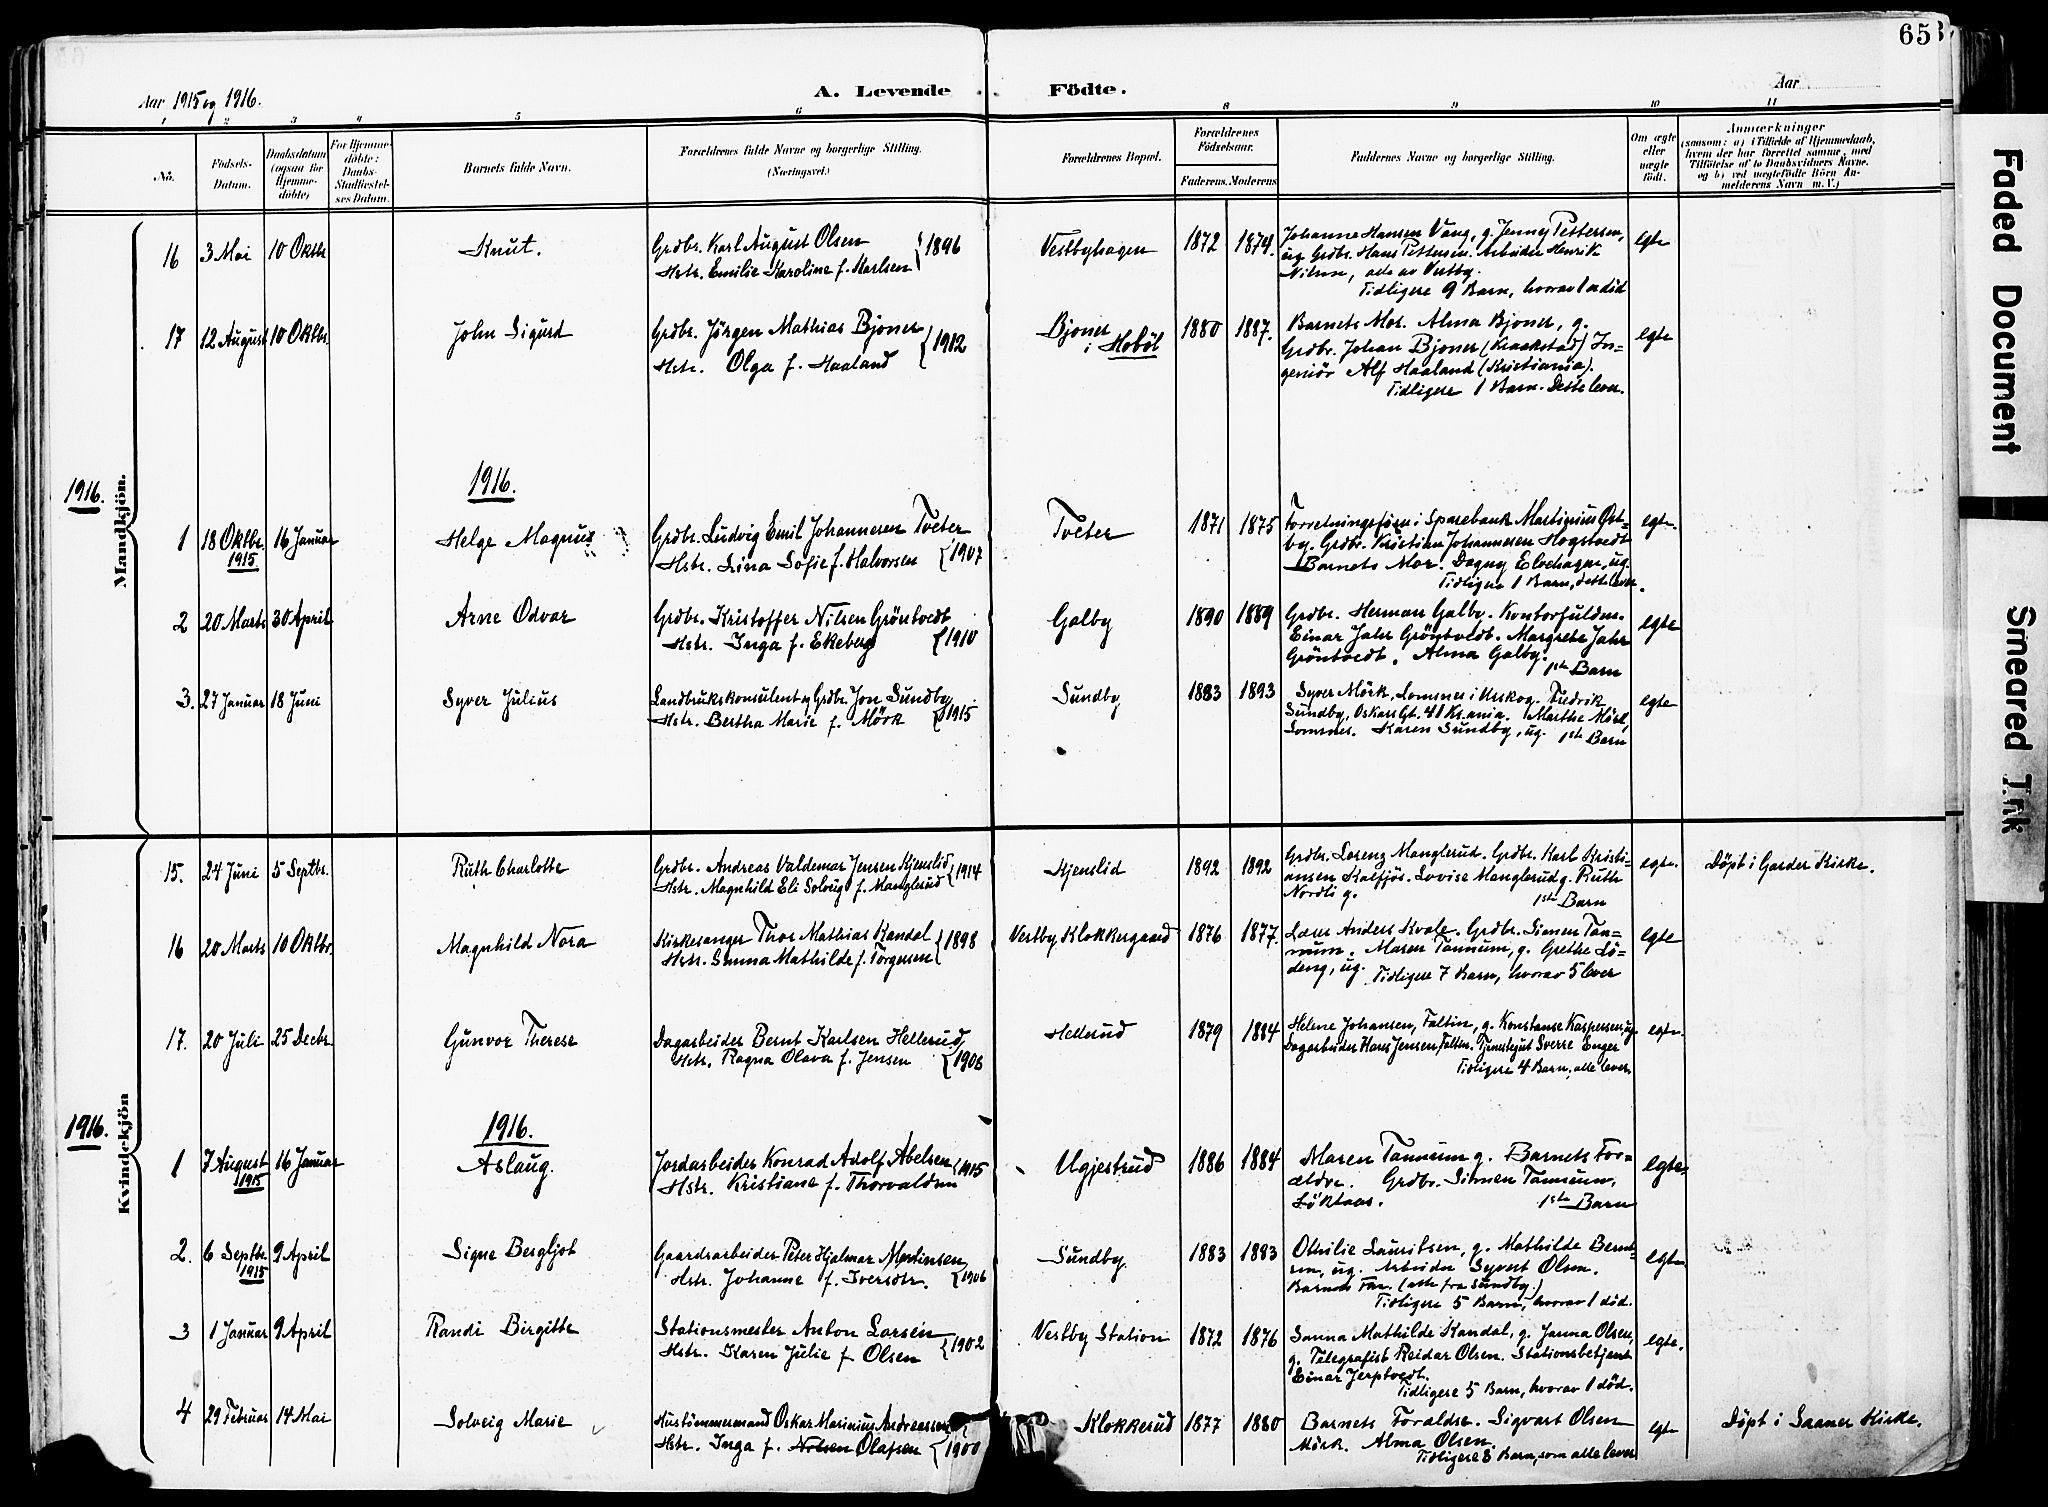 653.
Aar 1915 og 1916.
A. Levende Födte.
Aar
1 2 3 4 5 6 8 9 10 11
No.
Födsels-Datum.
Daabsdatum (ogsaa for Hjemme-döbte)
For Hjemme-döbte: Daabs-Stadfæstel-ses Datum.
Barnets fulde Navn.
Forældrenes fulde Navne og borgerlige Stilling.
(Næringsvei.)
Forældrenes Bopæl.
Forældrenes Födselsaar.
Faderens. Moderens
Faddernes Navne og borgerlige Stilling.
Om ægte eller uægte födt.
Anmærkninger
(saasom: a) i Tilfælde af Hjemmedaab,
hvem der har forrettet samme, med
Tilföielse af to Daabsvidners Navne.
og b) ved uægtefödte Börn An-
melderens Navn m. V.)
Mandkjön.
16 3 Mai 10 Oktbr Knut. Grdbr. Karl August Olsen
Hstr. Emilie Karoline f. Karlsen 1896 Vestbyhagen 1872 1874. Johanne Hansen Vang, g. Jenny Pettersen,
ug Grdbr. Hans Pettersen. Arbeider Henrik
Nilsen, alle av Vestby.
Tidligere 9 Barn, hvorav 1 er död
egte
17 12 August 10 Oktbr. John Sigurd Grdbr. Jörgen Mathias Bjoner
Hstr. Olga f. Haaland 1912 Bjoner i Hobøl 1880 1887. Barnets Mor. Alma Bjoner, g.
Grdbr. Johan Bjoner (Kraakstad) In=
geniör Alf Haaland (Kristiania).
Tidligere 1 Barn. Dette lever.
egte
1916.
1916.
1 18 Oktbr. 1915 16 Januar Helge Magnus Grdbr. Ludvig Emil Johannesen Tveter
Hstr. Lina Sofie f. Halvorsen 1907 Tveter 1871 1875 Forretningsförer i Sparebank Martinius Øst-
by. Grdbr. Kristian Johannesen Hogstvedt
Barnets Mor. Dagny Elvehagen, ug.
Tidligere 1 Barn, dette lever.
egte.
2 20 Marts 30 April Arne Odvar Grdbr. Kristoffer Nilsen Gröntvedt
Hstr. Inga f. Ekeberg 1910 Galby 1890 1889 Grdbr. Herman Galby. Kontorfuldm.
Einar Jahr Gröntvedt. Margrete Jahr
Gröntvedt. Alma Galby. 1ste Barn
egte
3. 27 Januar 18 Juni Syver Julius Landbrukskonsulent og Grdbr. Jon Sundby
Hstr. Bertha Marie f. Mörk 1915 Sundby 1883 1893 Syver Mörk, Lomsnes i Urskog. Fredrik
Sundby, Oskars Gt. 41 Kr.ania. Marthe Mörk,
Lomsnes. Karen Sundby, ug. 1ste Barn
egte
Kvindekjön
15. 24 Juni 5 Septbr. Ruth Charlotte Grdbr. Andreas Valdemar Jensen Kjenslid
Hstr. Magnhild Eli Solveig f. Manglerud 1914 Kjenslid 1892 1892 Grdbr. Lorenz Manglerud. Grdbr. Karl Kristi-
ansen Kalfjös. Lovise Manglerud g. Ruth
Nordli g. 1ste Barn
egte. Döpt i Garder Kirke.
16 20 Marts 10 Oktbr. Magnhild Nora Kirkesanger Thor Mathias Kandal
Hstr. Sanna Mathilde f. Torgersen 1898 Vestby Klokkergaard 1876 1877. Lærer Anders Kvale. Grdbr. Simen Tan=
num. Maren Tannum, g. Grethe Lö=
deng, ug. Tidligere 7 Barn, hvorav 5 lever
egte
17. 20 Juli 25 Decbr. Gunvor Therese Dagarbeider Bernt Karlsen Hellerud,
Hstr. Ragna Olava f. Jensen Hellerud 1879 1884 Helene Johansen, Faltin, g. Konstanse Kaspersen ug.
Dagarbeider Hans Jensen, Faltin. Tjenestegut Sverre Enger
Tidligere 4 Barn, alle lever.
egte.
1916.
1916.
1 7 August 1915 16 Januar Aslaug. Jordarbeider Konrad Adolf Abelsen
Hstr. Kristiane f. Thorvaldsen 1915 Ugjestrud 1886 1884 Maren Tannum g. Barnets For=
ældre. Grdbr. Simen Tannum,
1ste Barn
egte.
2. 6 Septbr. 1915 9 April Signe Bergljot Gaardsarbeider Peter Hjalmar Martinsen
Hstr. Johanne f. Iversdtr. 1906 Sundby 1883 1883 Othilie Lauritsen, g. Mathilde Bernt=
sen, ug. Arbeider Syvert Olsen.
Barnets Far. (alle fra Sundby.)
Tidligere 5 Barn, hvorav 1 död.
egte.
3 1 Januar 9 April Randi Birgitte Stationsmester Anton Larsen
Hstr. Karen Julie f Olsen 1902 Vestby Station 1872 1876 Sanna Mathilde Kandal, g. Janna Olsen,
g. Telegrafist Reidar Olsen. Stationsbetjent
Einar Jerptvedt.
Tidligere 5 Barn, hvorav 1 död.
egte.
4 29 Februar 14 Mai Solveig Marie Hustömmermand Oskar Marinius Andreassen
Hstr. Inga f. Nilsen Olafsen 1900 Klokkerud 1877 1880 Barnets Foraldre. Sigvart Olsen
Mörk. Alma Olsen.
Tidligere 8 Barn, som alle lever
egte Döpt i Saaner Kirke.
Faded Document
Smeared Ink